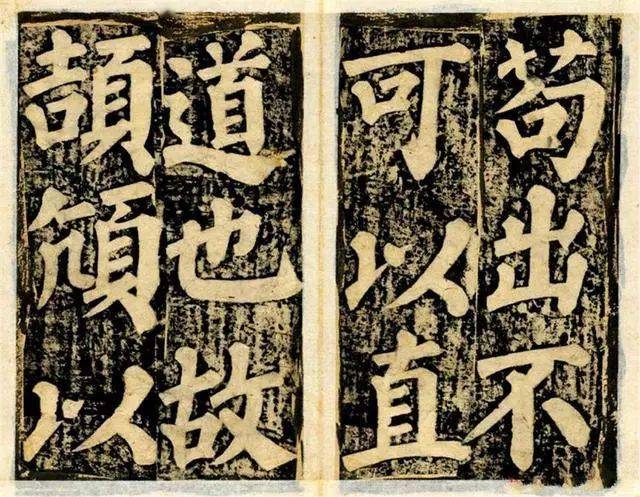 苟出不
可以直
道也故
頡頏以